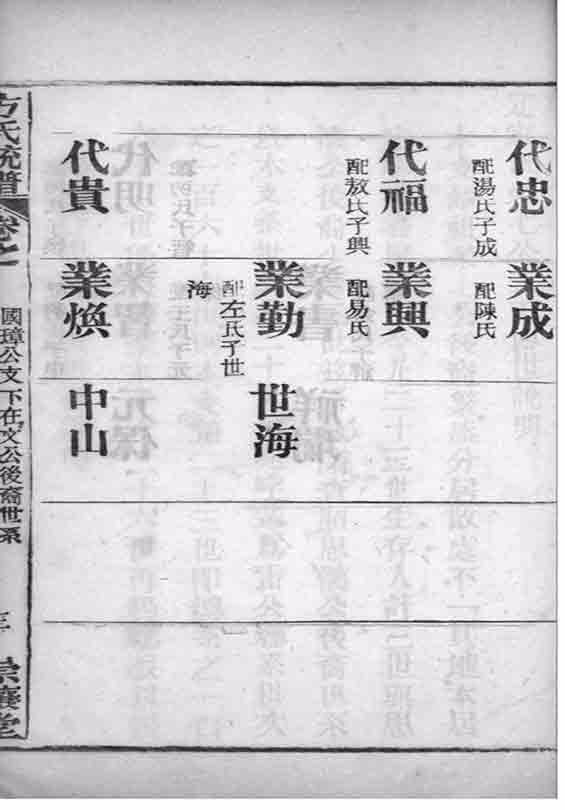 代忠
配湯氏子成
業成
配陳氏
代福
配敖氏子興
業興
配易氏
業勤
配左氏子世
海
世海
代貴
業煥
中山
方氏統譜
卷之
國璋公支下在文公後裔世系
三